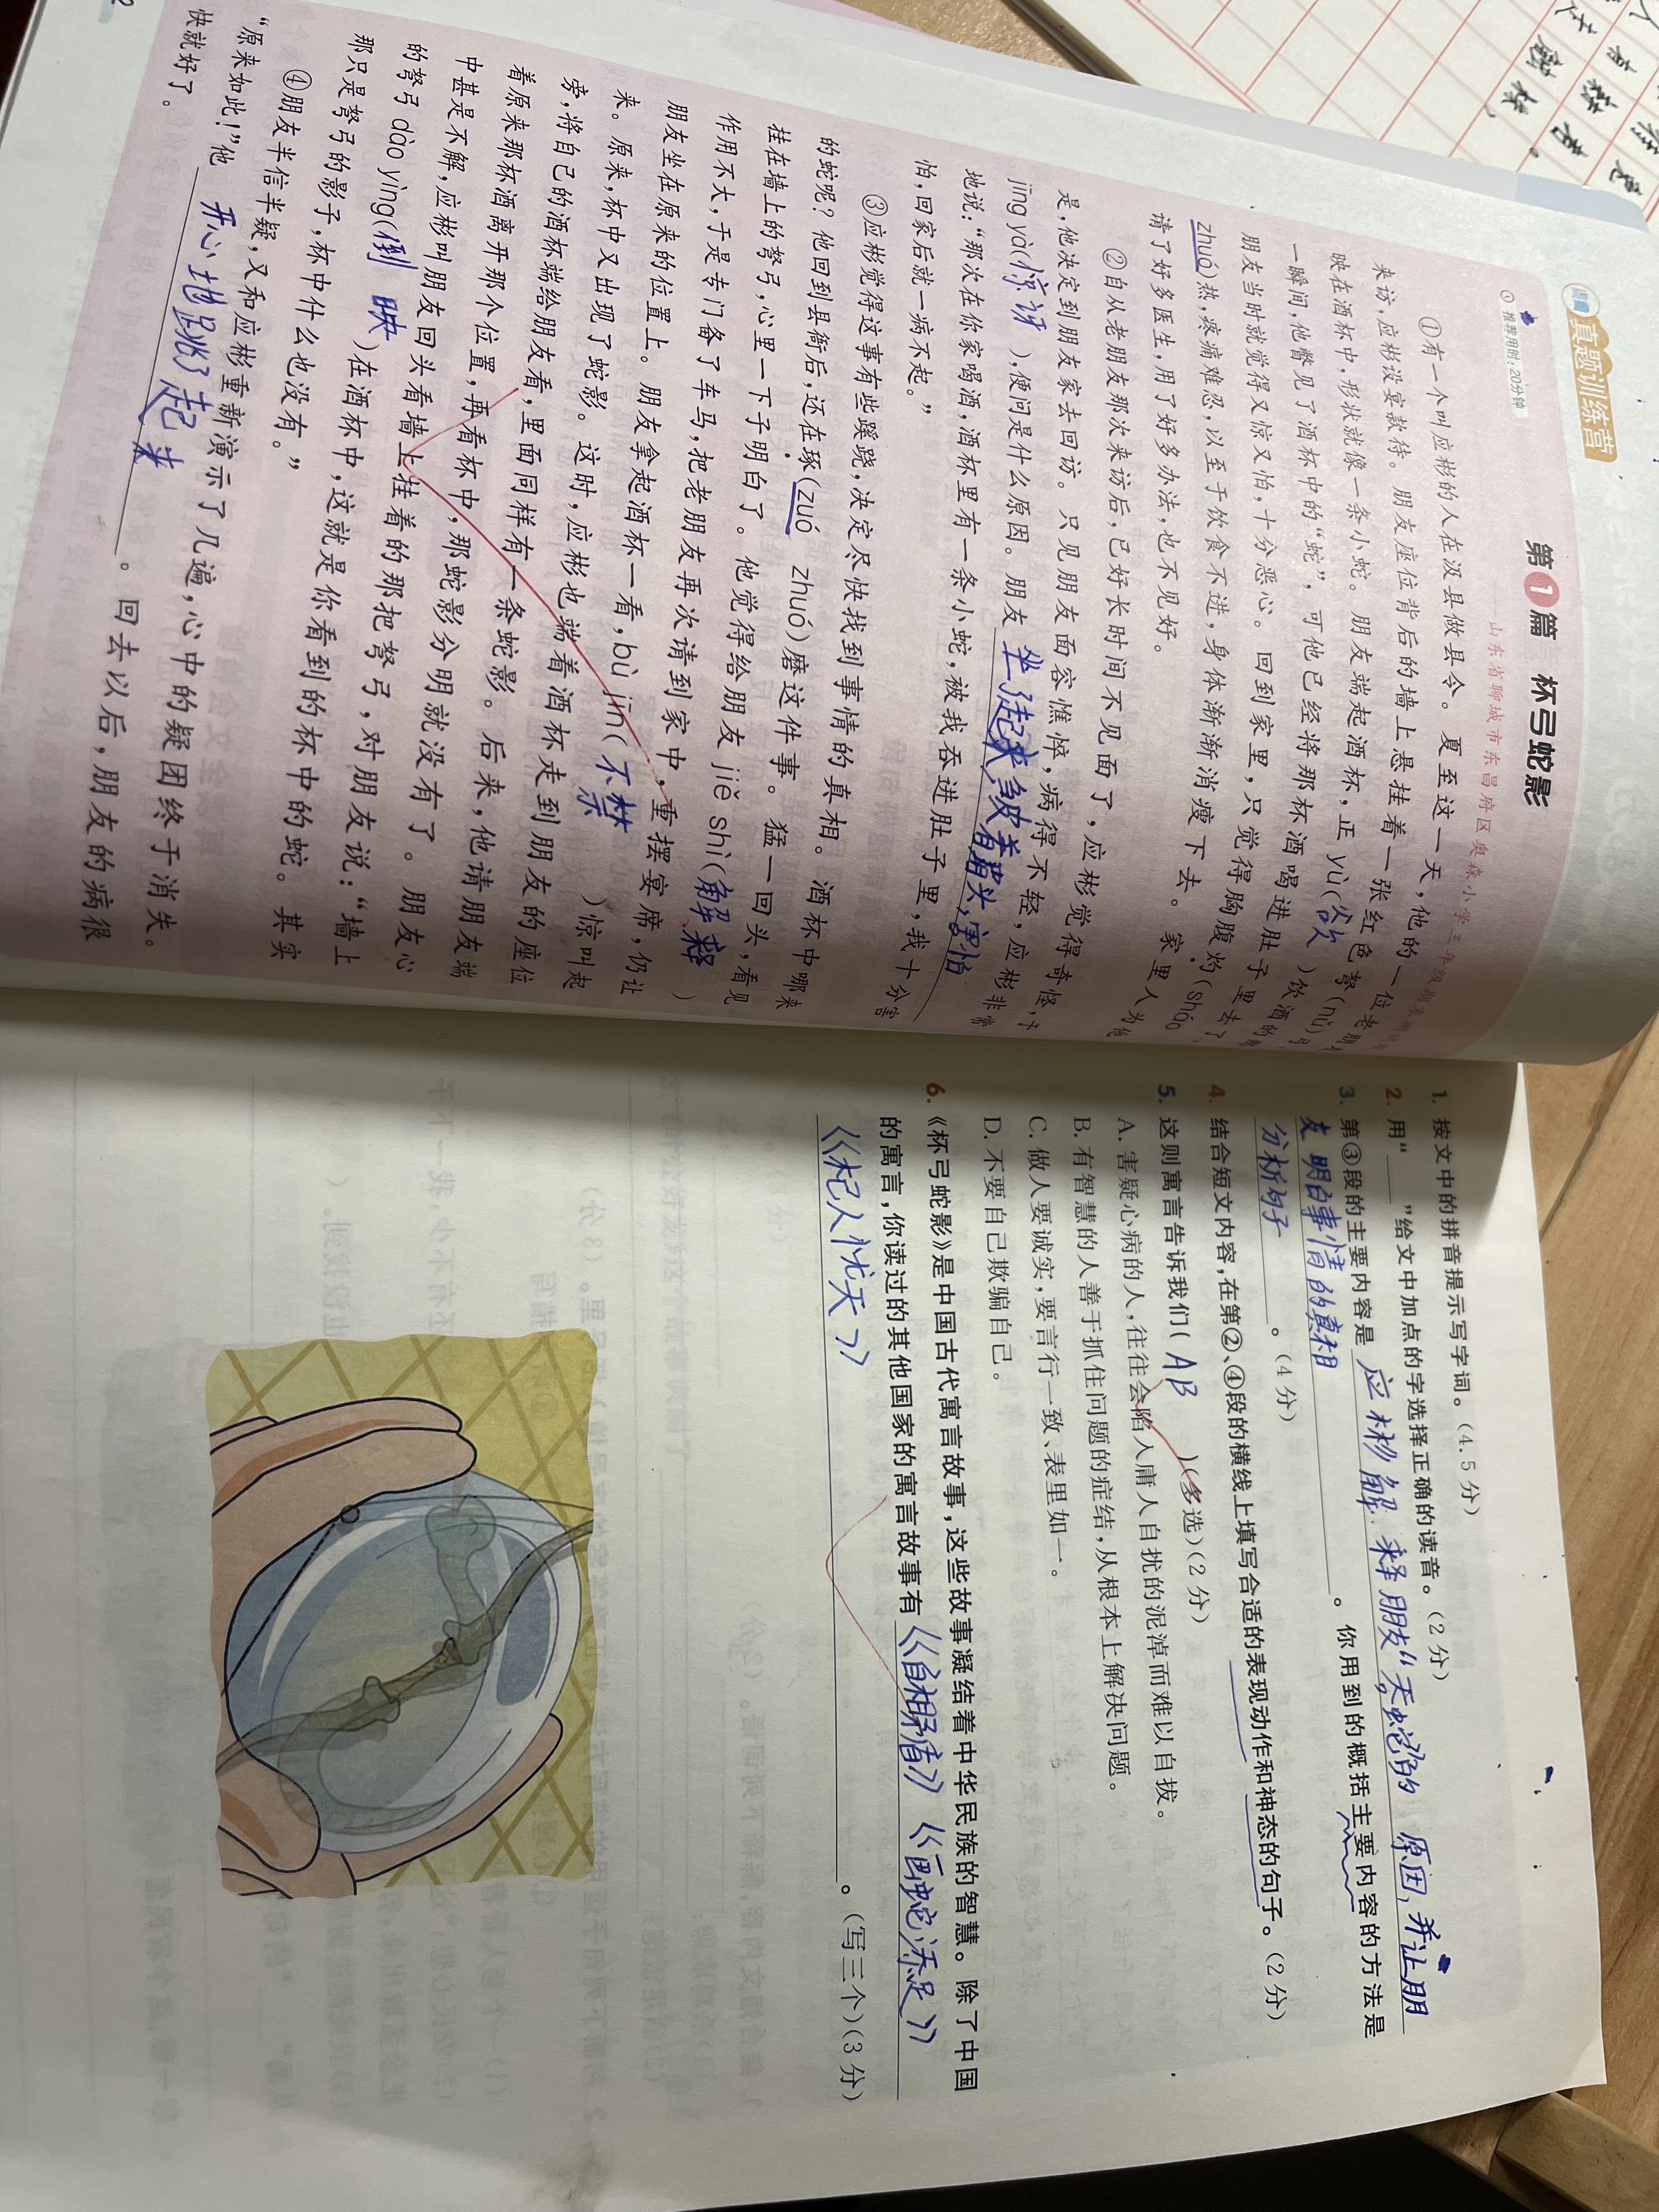 真题训练营
推荐用时:20分钟
第1篇 杯弓蛇影
——山东省聊城市东昌府区奥森小学三年级
①有一个叫应彬的人在汲县做县令。夏至这一天,他的一位老朋友
来访,应彬设宴款待。朋友座位背后的墙上悬挂着一张红色弩(nǔ)弓,
映在酒杯中,形状就像一条小蛇。朋友端起酒杯,正yù(欲)饮酒的
一瞬间,他瞥见了酒杯中的“蛇”,可他已经将那杯酒喝进肚子里去了。
朋友当时就觉得又惊又怕,十分恶心。回到家里,只觉得胸腹灼(sháo
zhuó)热,疼痛难忍,以至于饮食不进,身体渐渐消瘦下去。家里人为他
请了好多医生,用了好多办法,也不见好。
②自从老朋友那次来访后,已好长时间不见面了,应彬觉得奇怪,于
是,他决定到朋友家去回访。只见朋友面容憔悴,病得不轻,应彬非常
jīng yà(惊讶),便问是什么原因。朋友坐起来,皱着眉头,害怕
地说:“那次在你家喝酒,酒杯里有一条小蛇,被我吞进肚子里,我十分害
怕,回家后就一病不起。”
③应彬觉得这事有些蹊跷,决定尽快找到事情的真相。酒杯中哪来
的蛇呢?他回到县衙后,还在琢(zuó zhuó)磨这件事。猛一回头,看见
挂在墙上的弩弓,心里一下子明白了。他觉得给朋友jiě shì(解释)
作用不大,于是专门备了车马,把老朋友再次请到家中,重摆宴席,仍让
朋友坐在原来的位置上。朋友拿起酒杯一看,bù jīn(不禁)惊叫起
来。原来,杯中又出现了蛇影。这时,应彬也端着酒杯走到朋友的座位
旁,将自己的酒杯端给朋友看,里面同样有一条蛇影。后来,他请朋友端
着原来那杯酒离开那个位置,再看杯中,那蛇影分明就没有了。朋友心
中甚是不解,应彬叫朋友回头看墙上挂着的那把弩弓,对朋友说:“墙上
的弩弓dào yìng(倒映)在酒杯中,这就是你看到的杯中的蛇。其实
那只是弩弓的影子,杯中什么也没有。”
④朋友半信半疑,又和应彬重新演示了几遍,心中的疑团终于消失。
“原来如此!”他开心地跳了起来。回去以后,朋友的病很
快就好了。
2
1. 按文中的拼音提示写字词。(4.5分)
2. 用“____”给文中加点的字选择正确的读音。(2分)
3. 第③段的主要内容是应彬解释朋友“天蛇的原因,并让朋
友明白事情的真相。你用到的概括主要内容的方法是
分析句子。(4分)
4. 结合短文内容,在第②、④段的横线上填写合适的表现动作和神态的句子。(2分)
5. 这则寓言告诉我们(AB)(多选)(2分)
A. 害疑心病的人,往往会陷入庸人自扰的泥淖而难以自拔。
B. 有智慧的人善于抓住问题的症结,从根本上解决问题。
C. 做人要诚实,要言行一致、表里如一。
D. 不要自己欺骗自己。
6. 《杯弓蛇影》是中国古代寓言故事,这些故事凝结着中华民族的智慧。除了中国
的寓言,你读过的其他国家的寓言故事有《自相矛盾》《画蛇添足》
《杞人忧天》。(写三个)(3分)